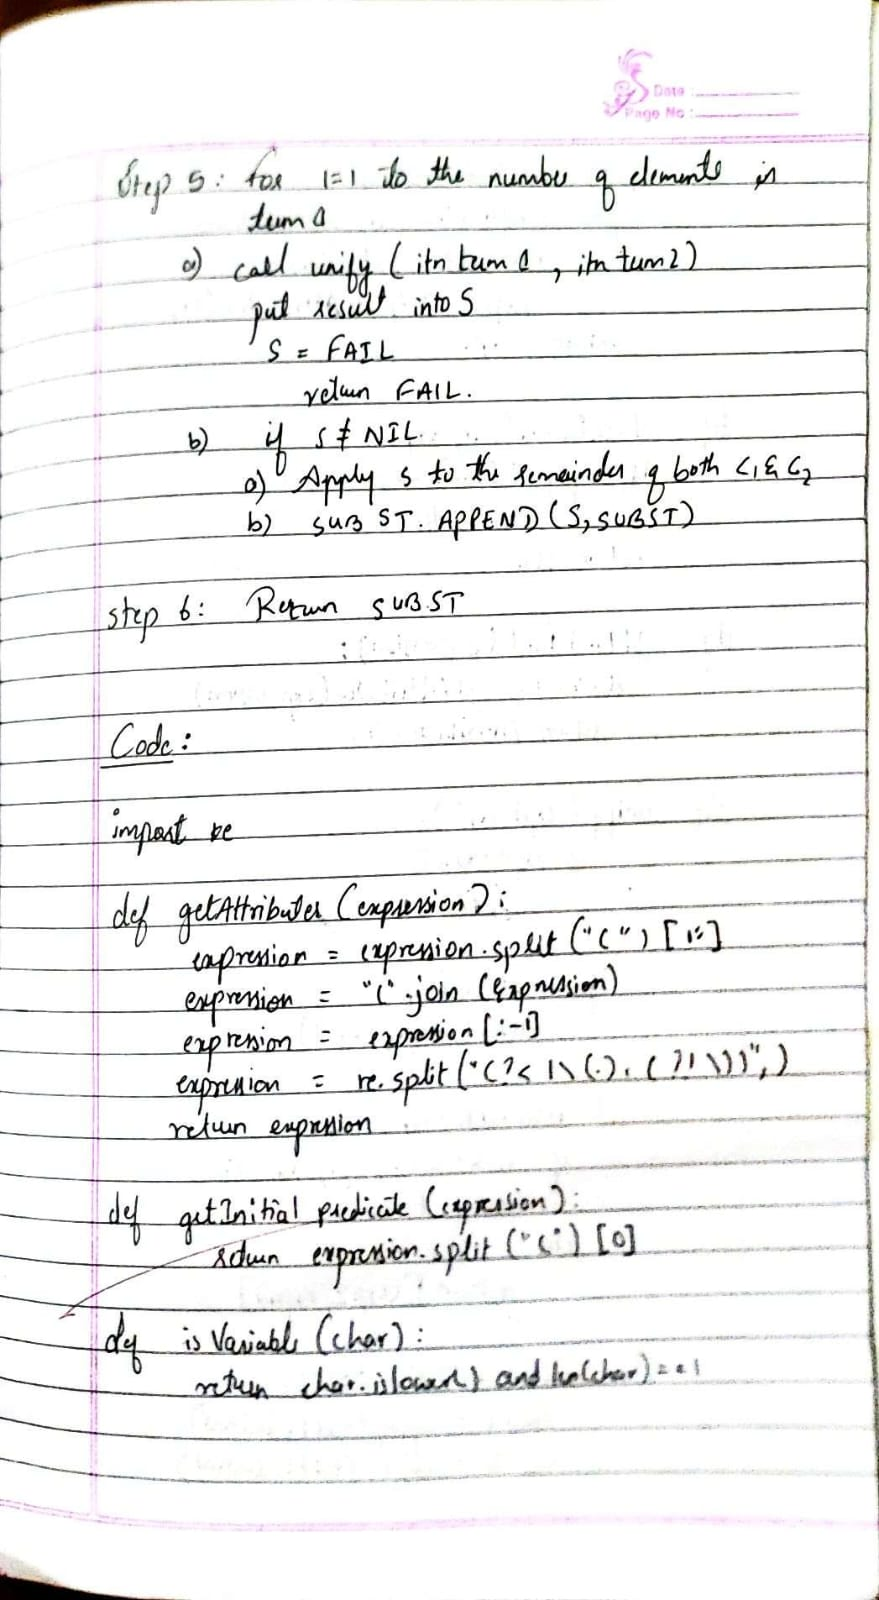 Date :
Page No :
Step 5: for i=1 to the number of elements in
term 1
a) call unify (ith term 1, ith term2)
put result into S
S = FAIL
return FAIL.
b) if S ≠ NIL
a) Apply S to the remainder of both C1 & C2
b) SUBST. APPEND (S, SUBST)
step 6: Return SUBST
Code :
import re
def getAttributes (expression) :
expression = expression.split ("(") [1:]
expression = "(".join (expression)
expression = expression [:-1]
expression = re.split ("(?<!\(.),(?!.\))",)
return expression
def getInitial predicate (expression) :
return expression.split ("(") [0]
def is Variable (char) :
return char.islower() and len(char) == 1